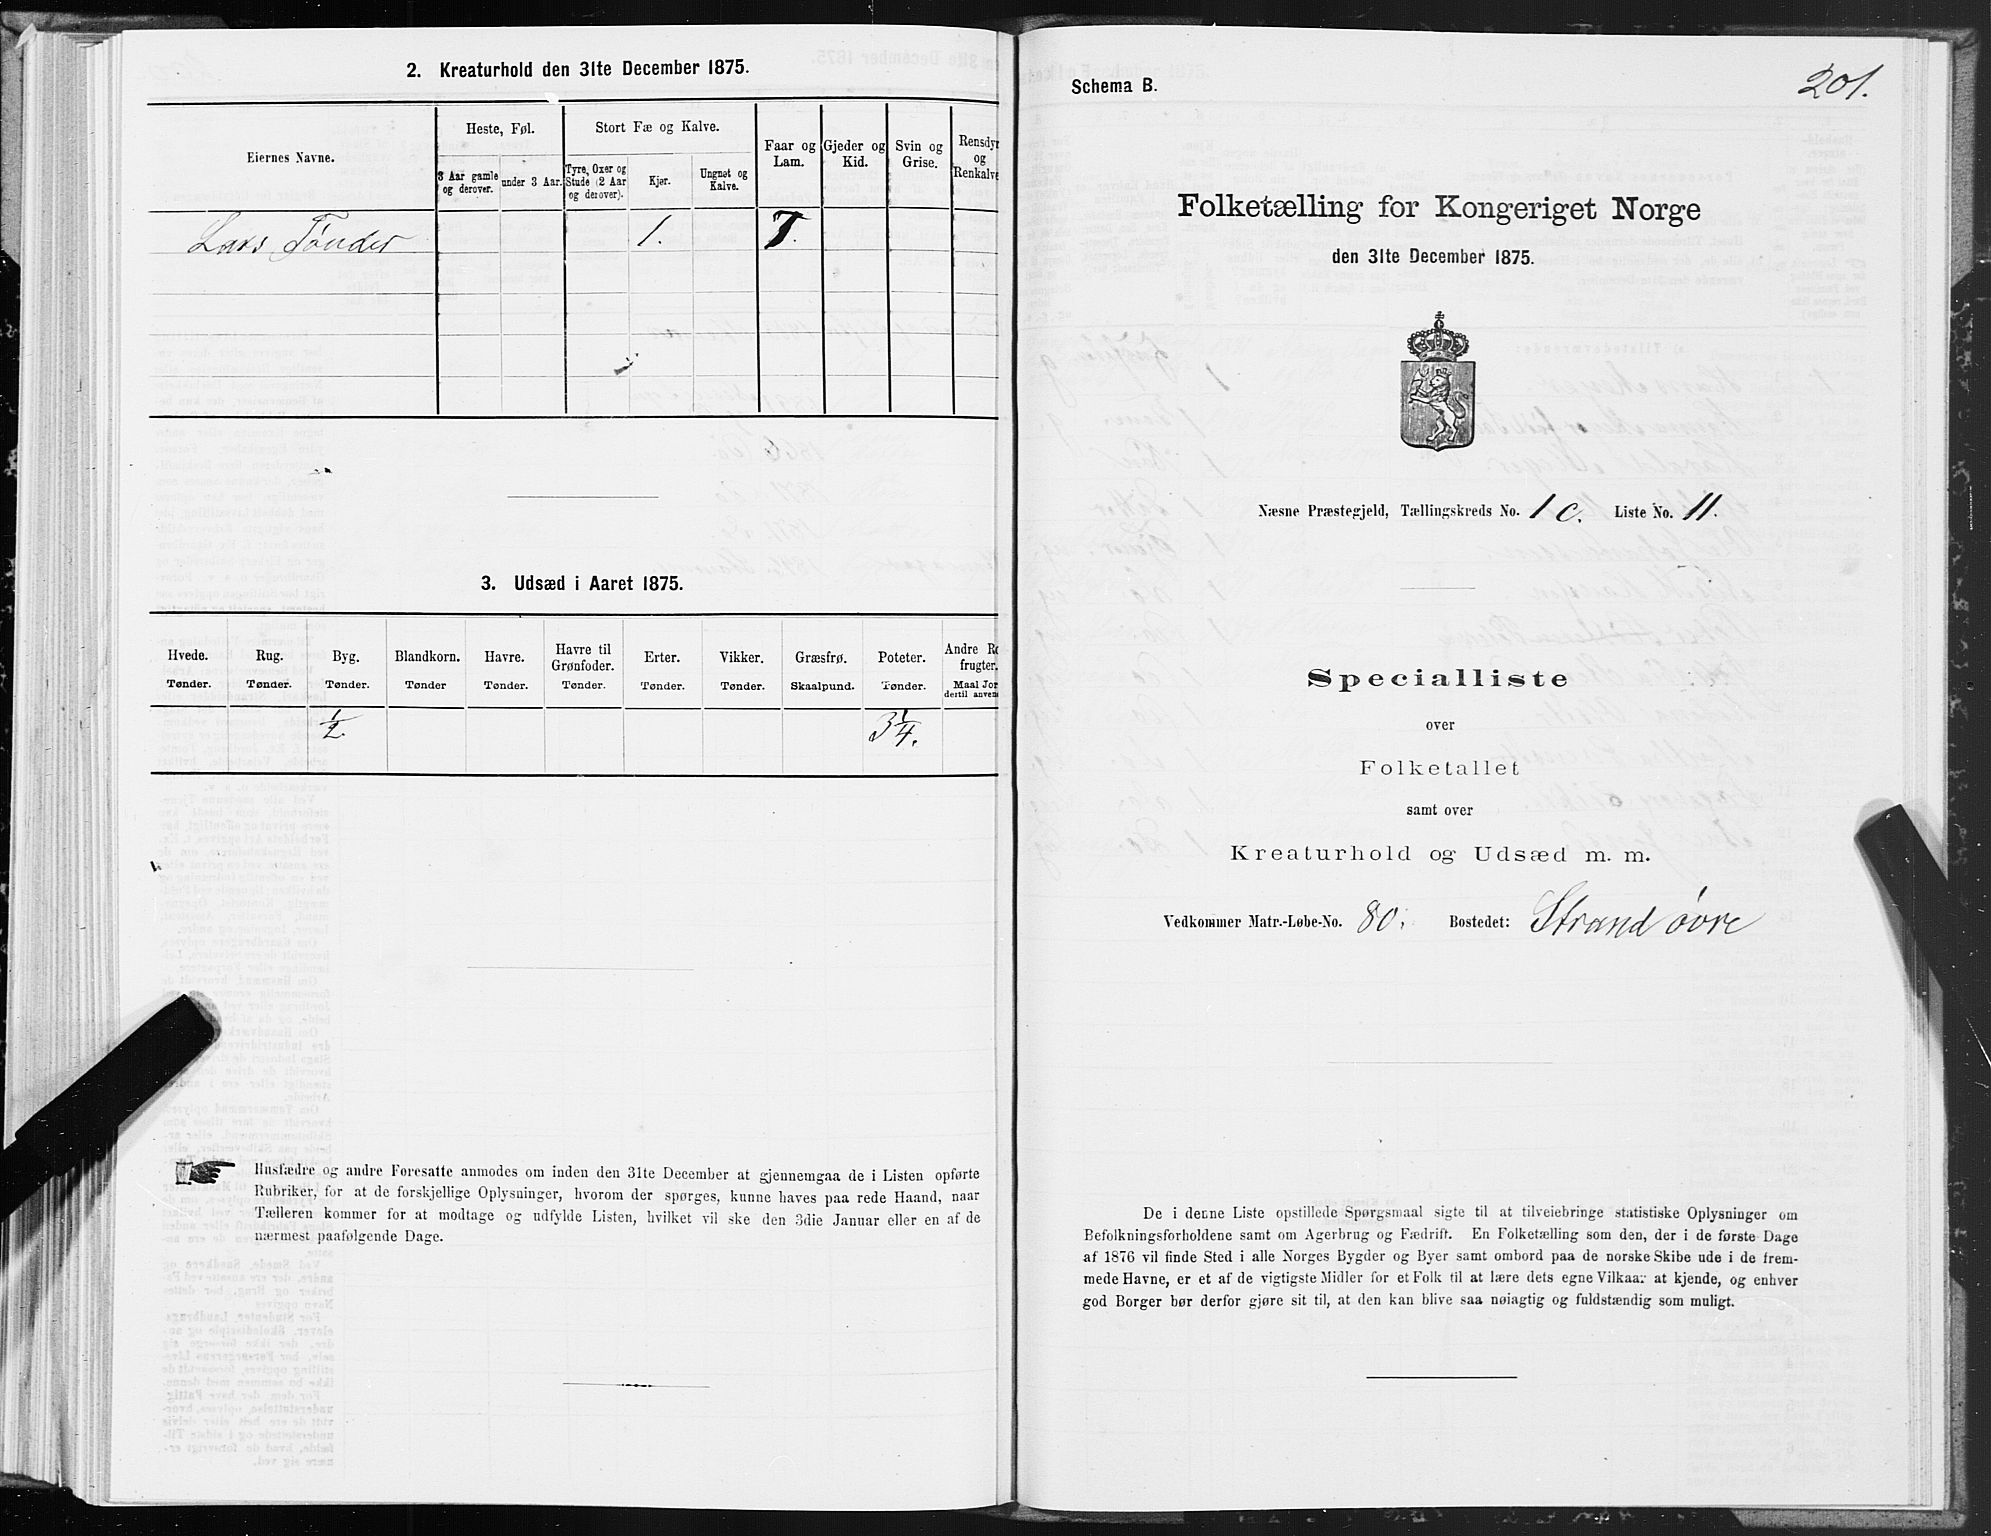 2. Kreaturhold den 31te December 1875.
Eiernes Navne.
Heste, Føl.
3 Aar gamle og derover.
under 3 Aar.
Stort Fæ og Kalve.
Tyre, Oxer og Stude (2 Aar og derover).
Kjør.
Ungnøt og Kalve.
Faar og Lam.
Gjeder og Kid.
Svin og Grise.
Rensdyr og Renkalve
Lars Tønder 1. 7.
3. Udsæd i Aaret 1875.
Hvede. Rug. Byg. Blandkorn. Havre. Havre til Grønfoder. Erter. Vikker. Græsfrø. Poteter. Andre Ro frugter.
Tønder. Tønder. Tønder. Tønder Tønder. Tønder. Tønder. Tønder. Skaalpund. Tønder. Maal Jor dertil anven
1/2. 3 1/4.
Husfædre og andre Foresatte anmodes om inden den 31te December at gjennemgaa de i Listen opførte
Rubriker, for at de forskjellige Oplysninger, hvorom der spørges, kunne haves paa rede Haand, naar
Tælleren kommer for at modtage og udfylde Listen, hvilket vil ske den 3die Januar eller en af de
nærmest paafølgende Dage.
201.
Schema B.
Folketælling for Kongeriget Norge
den 31te December 1875.
Næsne Præstegjeld, Tællingskreds No. 1 c. Liste No. 11.
Specialliste
over
Folketallet
samt over
Kreaturhold og Udsæd m. m.
Vedkommer Matr.-Løbe-No. 80. Bostedet: Strand øvre
De i denne Liste opstillede Spørgsmaal sigte til at tilveiebringe statistiske Oplysninger om
Befolkningsforholdene samt om Agerbrug og Fædrift. En Folketælling som den, der i de første Dage
af 1876 vil finde Sted i alle Norges Bygder og Byer samt ombord paa de norske Skibe ude i de frem-
mede Havne, er et af de vigtigste Midler for et Folk til at lære dets egne Vilkaar at kjende, og enhver
god Borger bør derfor gjøre sit til, at den kan blive saa nøiagtig og fuldstændig som muligt.